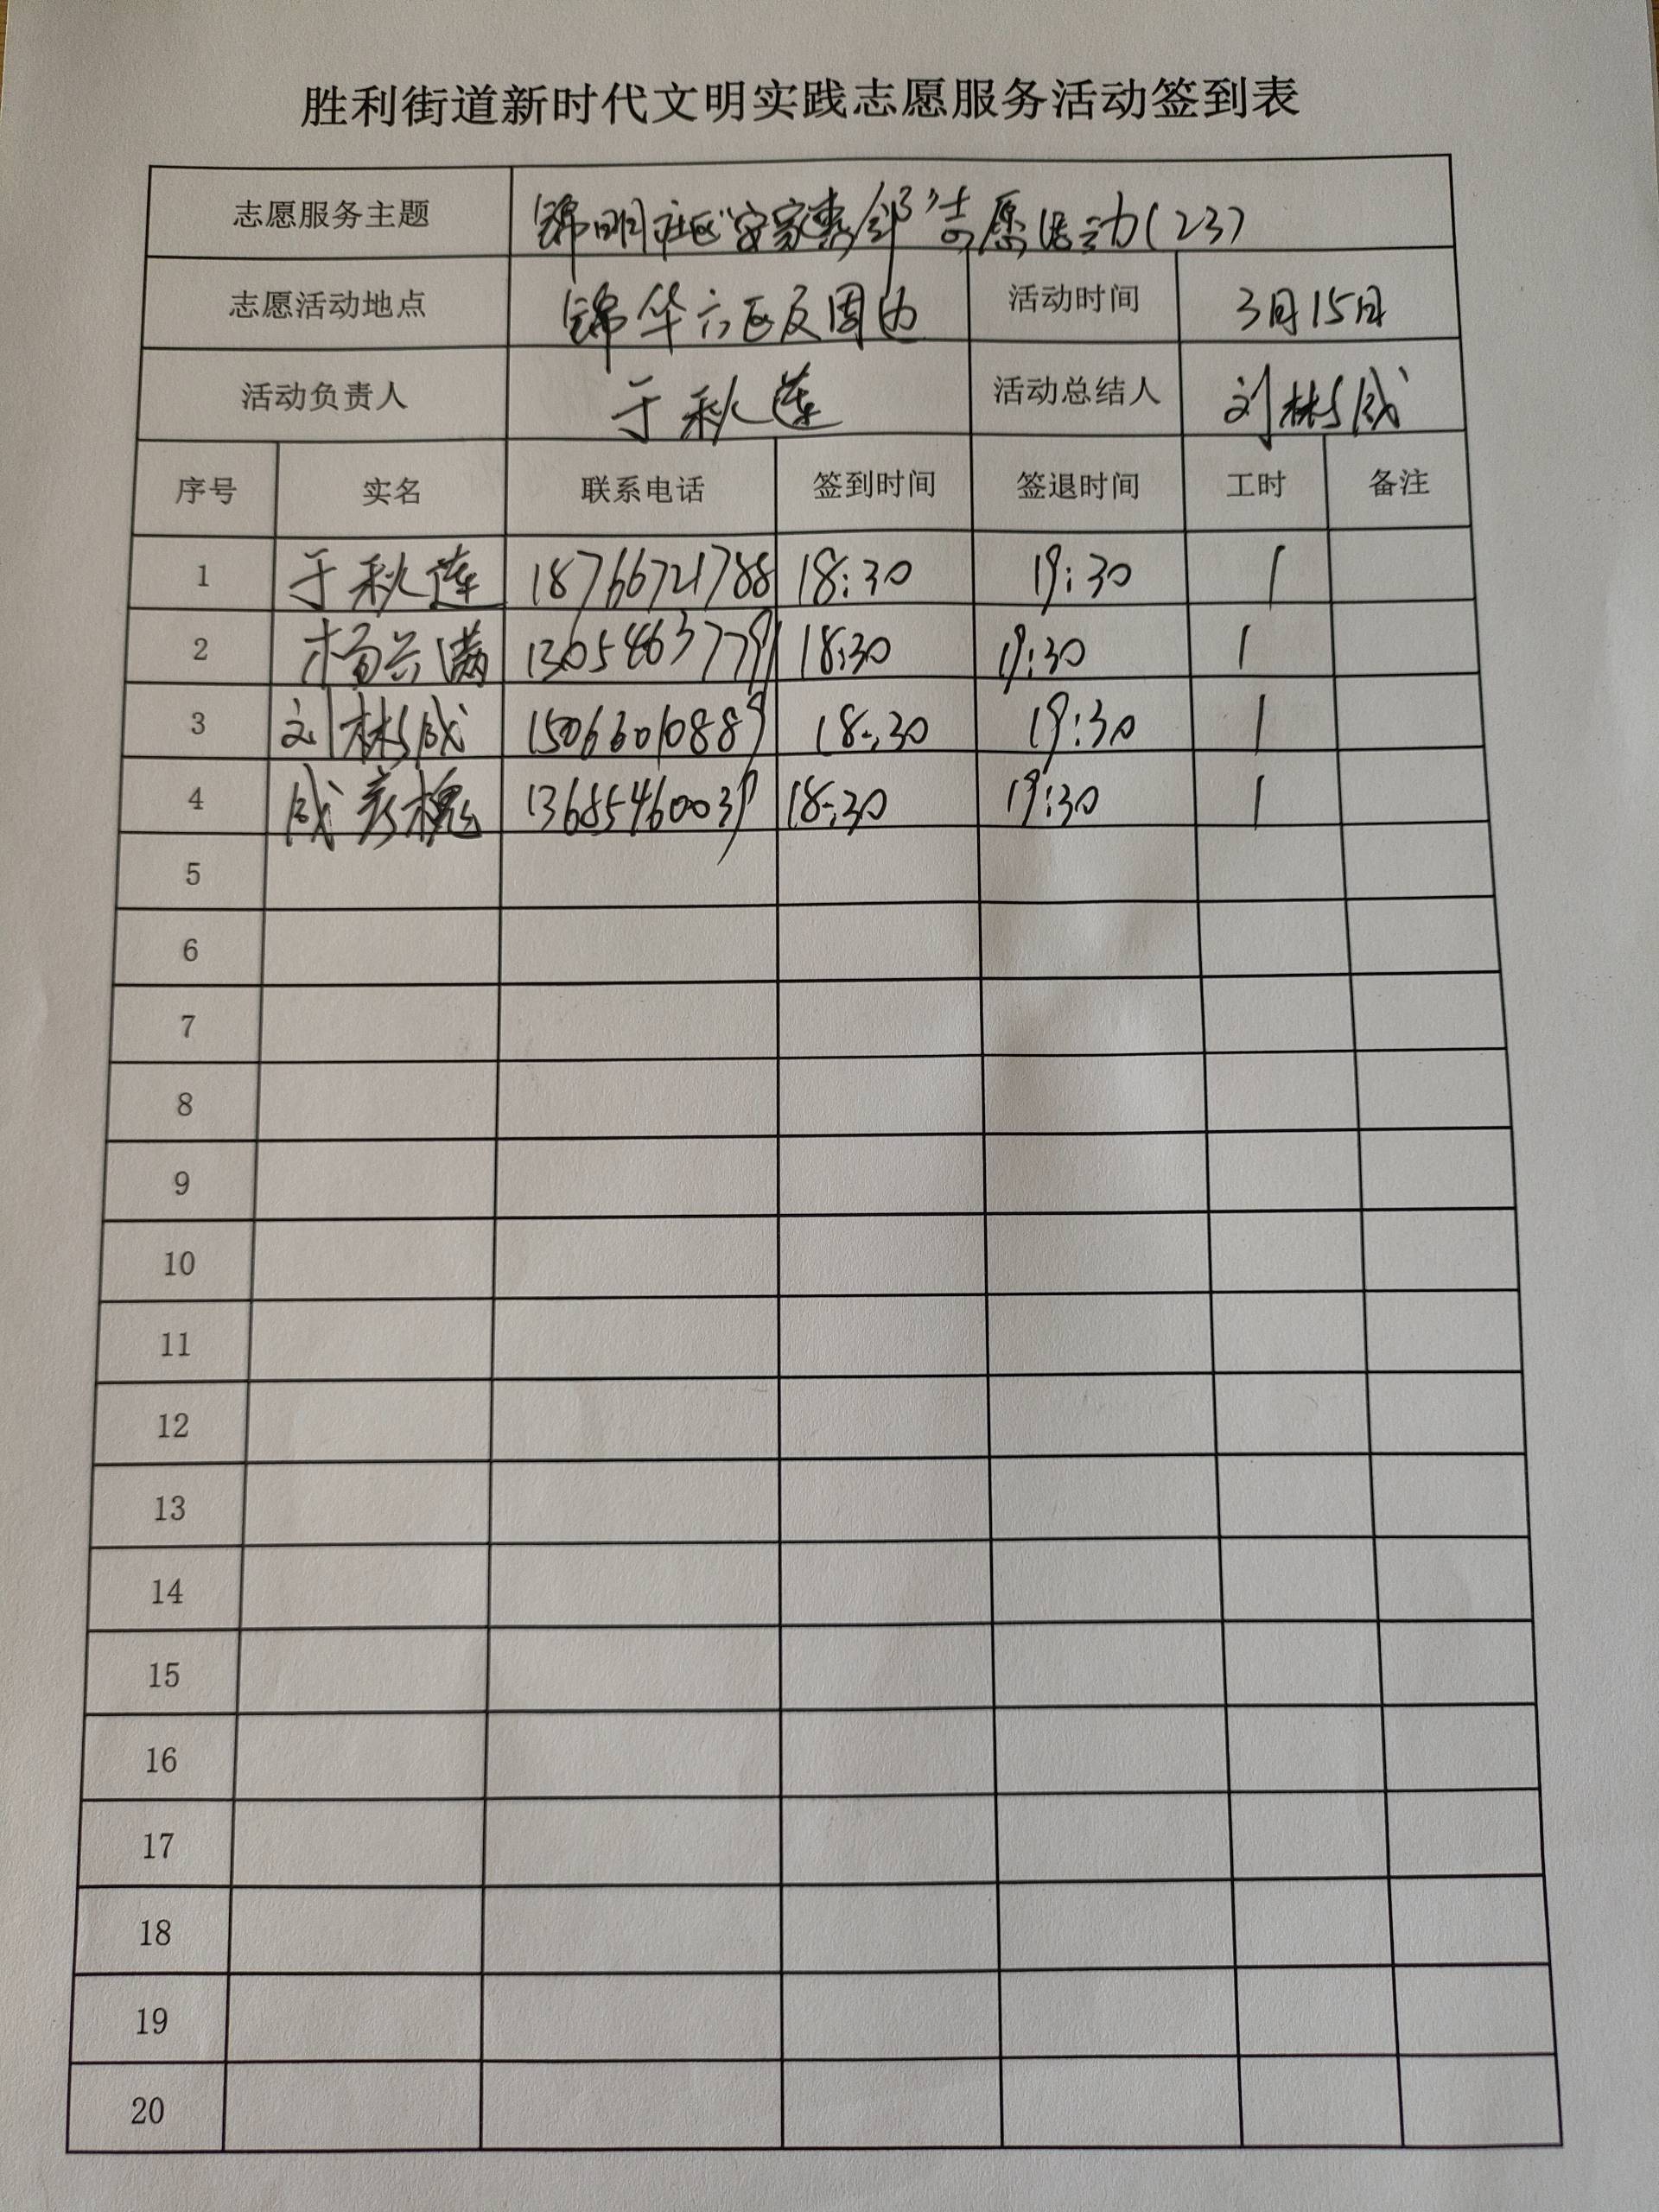 胜利街道新时代文明实践志愿服务活动签到表
志愿服务主题 锦明社区"安家惠邻"志愿活动(23)
志愿活动地点 锦华六区及周边 活动时间 3月15日
活动负责人 于秋莲 活动总结人 刘彬成
序号 实名 联系电话 签到时间 签退时间 工时 备注
1 于秋莲 18766721788 18:30 19:30 1
2 杨兴满 13054637791 18:30 19:30 1
3 刘彬成 15066010889 18:30 19:30 1
4 成彦槐 13685460039 18:30 19:30 1
5
6
7
8
9
10
11
12
13
14
15
16
17
18
19
20